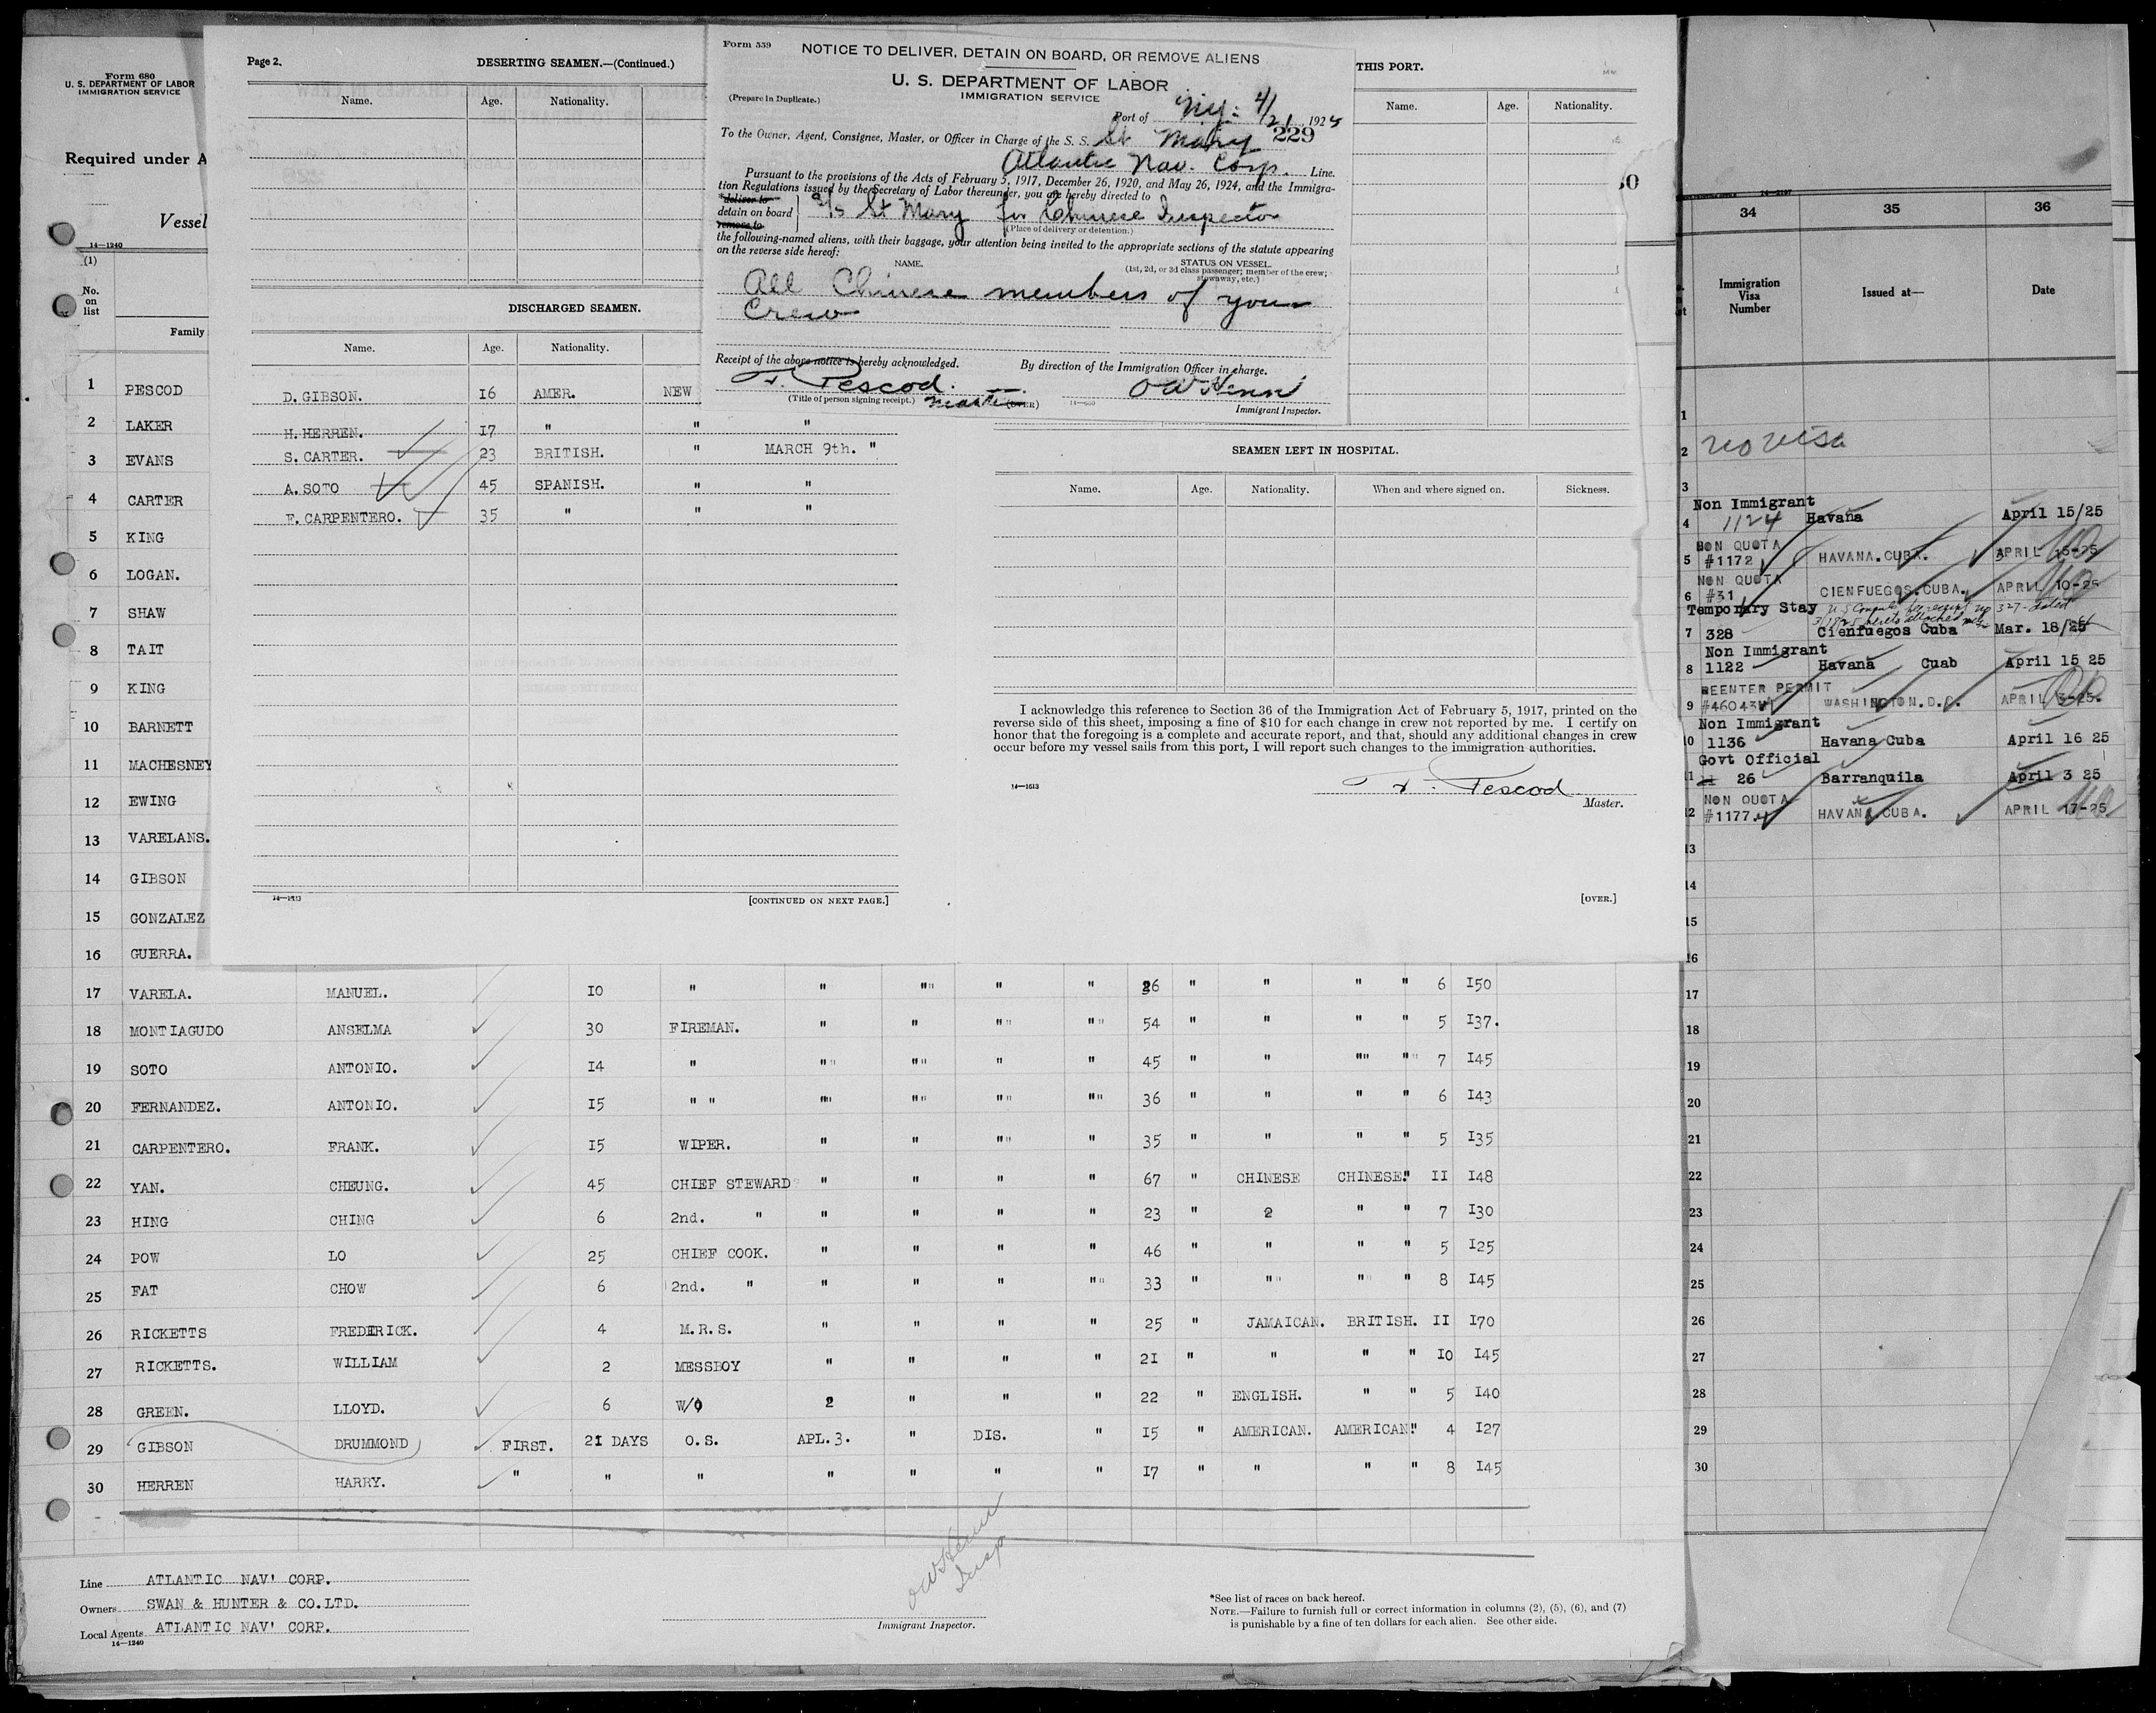 Form 680
U. S. DEPARTMENT OF LABOR
IMMIGRATION SERVICE
Required under A
Vessel
14—1240
(1)
No.
on
list
Family
1 PESCOD
2 LAKER
3 EVANS
4 CARTER
5 KING
6 LOGAN.
7 SHAW
8 TAIT
9 KING
10 BARNETT
11 MACHESNEY
12 EWING
13 VARELANS.
14 GIBSON
15 GONZALEZ
16 GUERRA.
Page 2.
DESERTING SEAMEN.—(Continued.)
Name. Age. Nationality.
DISCHARGED SEAMEN.
Name. Age. Nationality.
D. GIBSON. 16 AMER. NEW
H. HERREN. 17 " " "
S. CARTER. 23 BRITISH. " MARCH 9th. "
A. SOTO 45 SPANISH. " "
F. CARPENTERO. 35 " " "
14—1613
[CONTINUED ON NEXT PAGE.]
Form 559
NOTICE TO DELIVER, DETAIN ON BOARD, OR REMOVE ALIENS
U. S. DEPARTMENT OF LABOR
IMMIGRATION SERVICE
(Prepare in Duplicate.)
Port of N.Y. 4/21, 1925
229
To the Owner, Agent, Consignee, Master, or Officer in Charge of the S. S. St Mary
Atlantic Nav. Corp. Line.
Pursuant to the provisions of the Acts of February 5, 1917, December 26, 1920, and May 26, 1924, and the Immigra-
tion Regulations issued by the Secretary of Labor thereunder, you are hereby directed to
deliver to
detain on board
remove to
S/S St Mary for Chinese Inspector
(Place of delivery or detention.)
the following-named aliens, with their baggage, your attention being invited to the appropriate sections of the statute appearing
on the reverse side hereof:
NAME.
STATUS ON VESSEL.
(1st, 2d, or 3d class passenger; member of the crew;
stowaway, etc.)
All Chinese members of your
Crew
Receipt of the above notice is hereby acknowledged.
By direction of the Immigration Officer in charge.
F. Pescod.
(Title of person signing receipt.) Master
(OVER)
Immigrant Inspector.
THIS PORT.
Name. Age. Nationality.
SEAMEN LEFT IN HOSPITAL.
Name. Age. Nationality. When and where signed on. Sickness.
I acknowledge this reference to Section 36 of the Immigration Act of February 5, 1917, printed on the
reverse side of this sheet, imposing a fine of $10 for each change in crew not reported by me. I certify on
honor that the foregoing is a complete and accurate report, and that, should any additional changes in crew
occur before my vessel sails from this port, I will report such changes to the immigration authorities.
14—1613
F. Pescod
Master.
[OVER.]
34 35 36
Immigration
Visa
Number
Issued at—
Date
1
2 no visa
3
Non Immigrant
4 1124 Havana April 15/25
NON QUOTA
5 #1172 HAVANA.CUBA. APRIL 15-25
NON QUOTA
6 #31 CIENFUEGOS.CUBA. APRIL 10-25
Temporary Stay
7 328 Cienfuegos Cuba Mar. 18/25
Non Immigrant
8 1122 Havana Cuab April 15 25
REENTER PERMIT
9 #46043 WASHINGTON.D.C. APRIL 3-25.
Non Immigrant
10 1136 Havana Cuba April 16 25
Govt Official
11 26 Barranquila April 3 25
NON QUOTA
12 #1177 HAVANA CUBA. APRIL 17-25
13
14
15
16
17
18
19
20
21
22
23
24
25
26
27
28
29
30
17 VARELA. MANUEL. 10 " " "" " " 36 " " " " 6 150
18 MONTIAGUDO ANSELMA 30 FIREMAN. " " "" "" 54 " " " " 5 137.
19 SOTO ANTONIO. 14 " "" "" " " 45 " " "" "" 7 145
20 FERNANDEZ. ANTONIO. 15 " " "" "" "" "" 36 " " " " 6 143
21 CARPENTERO. FRANK. 15 WIPER. " " "" " 35 " " " " 5 135
22 YAN. CHEUNG. 45 CHIEF STEWARD " " " " 67 " CHINESE CHINESE " 11 148
23 HING CHING 6 2nd. " " " " " 23 " 2 " " 7 130
24 POW LO 25 CHIEF COOK. " " " " 46 " " " " 5 125
25 FAT CHOW 6 2nd. " " " " "" 33 " "" "" " 8 145
26 RICKETTS FREDERICK. 4 M.R.S. " " " " 25 " JAMAICAN. BRITISH. 11 170
27 RICKETTS. WILLIAM 2 MESSBOY " " " " 21 " " " " 10 145
28 GREEN. LLOYD. 6 W/O 2 " " " 22 " ENGLISH. " " 5 140
29 GIBSON DRUMMOND FIRST. 21 DAYS O.S. APL.3. " DIS. " 15 " AMERICAN. AMERICAN " 4 127
30 HERREN HARRY. " " " " " " " 17 " " " " 8 145
Line ATLANTIC NAV' CORP.
Owners SWAN & HUNTER & CO.LTD.
Local Agents ATLANTIC NAV' CORP.
14—1240
Immigrant Inspector.
*See list of races on back hereof.
NOTE.—Failure to furnish full or correct information in columns (2), (5), (6), and (7)
is punishable by a fine of ten dollars for each alien. See other side.